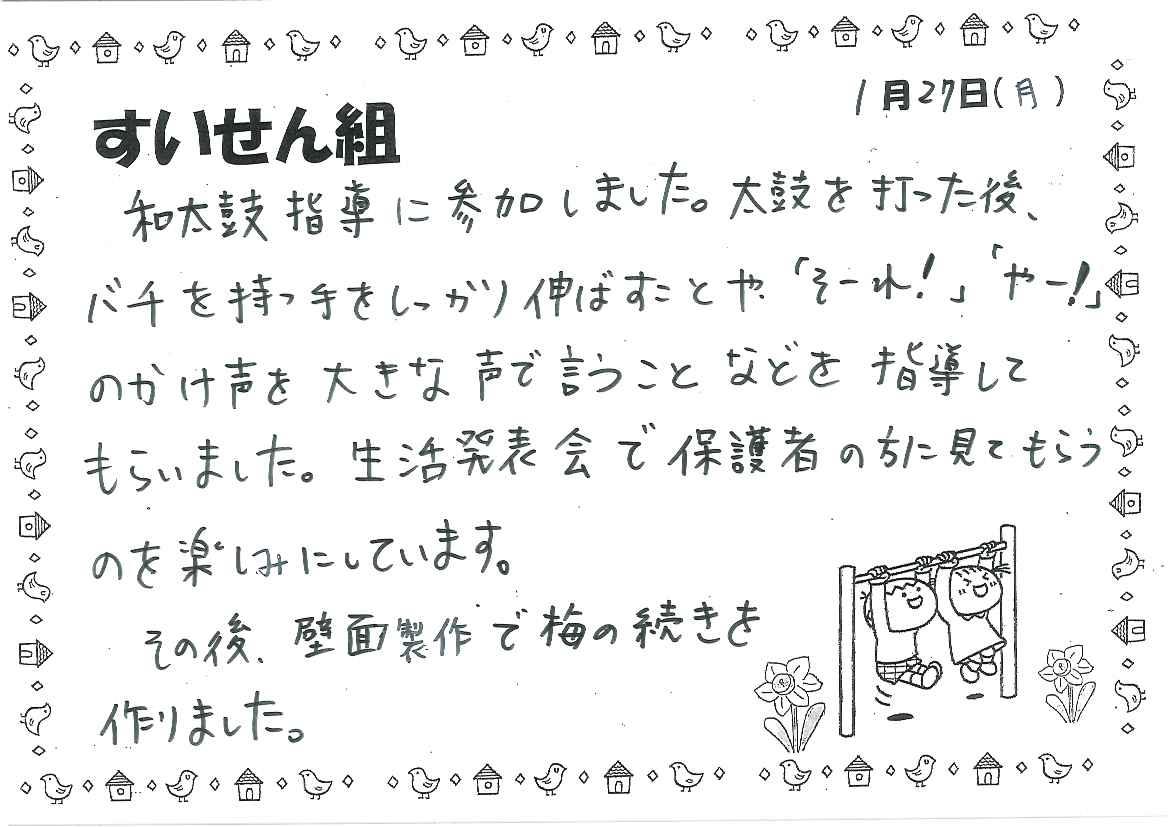 1月27日(月)
すいせん組
和太鼓指導に参加しました。太鼓を打った後、
バチを持つ手をしっかり伸ばすことや、「そーれ！」「やー！」
のかけ声を大きな声で言うことなどを指導して
もらいました。生活発表会で保護者の方に見てもらう
のを楽しみにしています。
その後、壁面製作で梅の続きを
作りました。